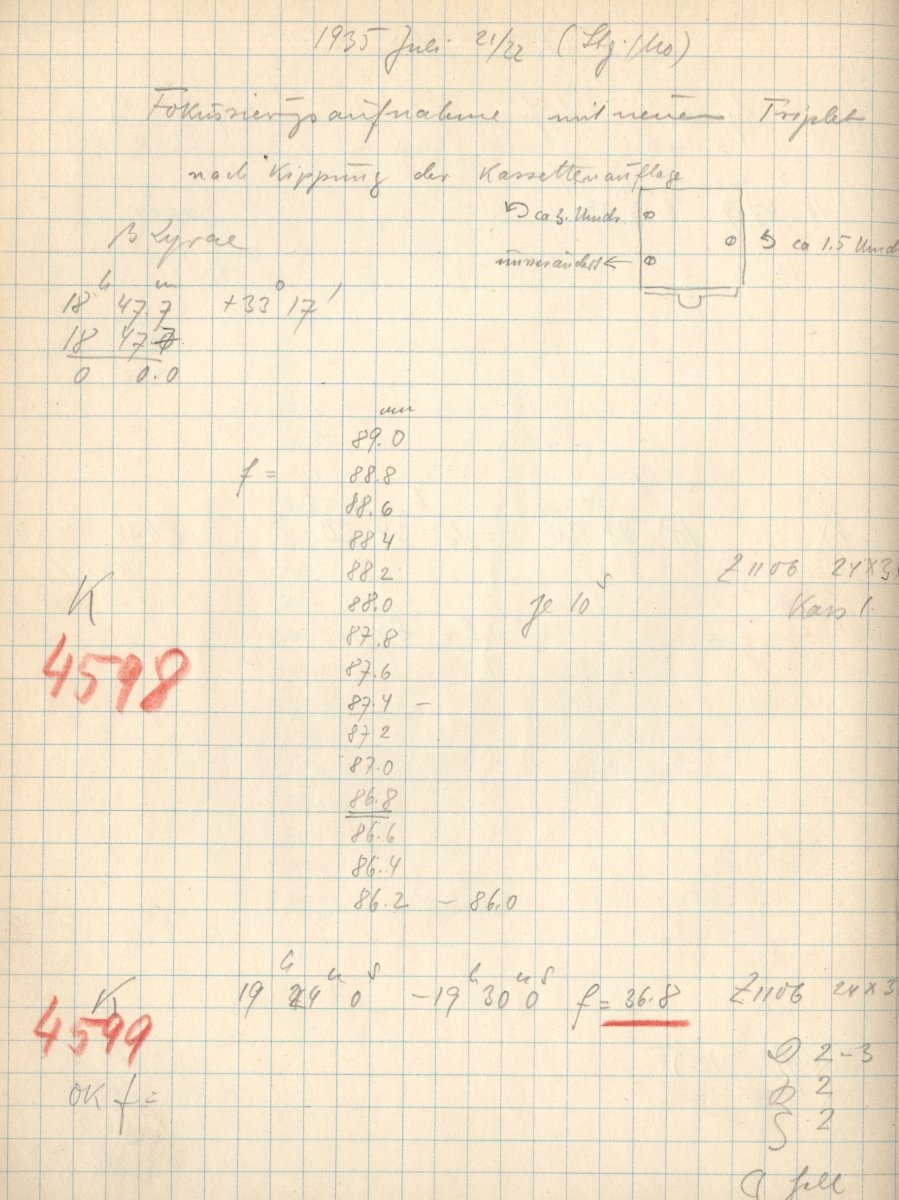 1935 Juli 21/22 (Stg./Mo)
Fokussierungsaufnahme mit neuem Triplet
nach Kippung der Kassettenauflage
ca 3. Umdr.
ca 1.5 Umdr
unverändert ←
β Lyrae
18h 47.m7 +33° 17'
18 47.7
0 0.0
mm
89.0
f = 88.8
88.6
88 4
88 2
K 88.0 je 10s Z 1106 24×3
Kass 1.
4598
87.8
87.6
87.4 –
87 2
87.0
86.8
86.6
86.4
86.2 – 86.0
K 19h 24m 0s – 19h 30m 0s f = 36.8 Z 1106 24×3
4599
2-3
OK f = 2
2
hell